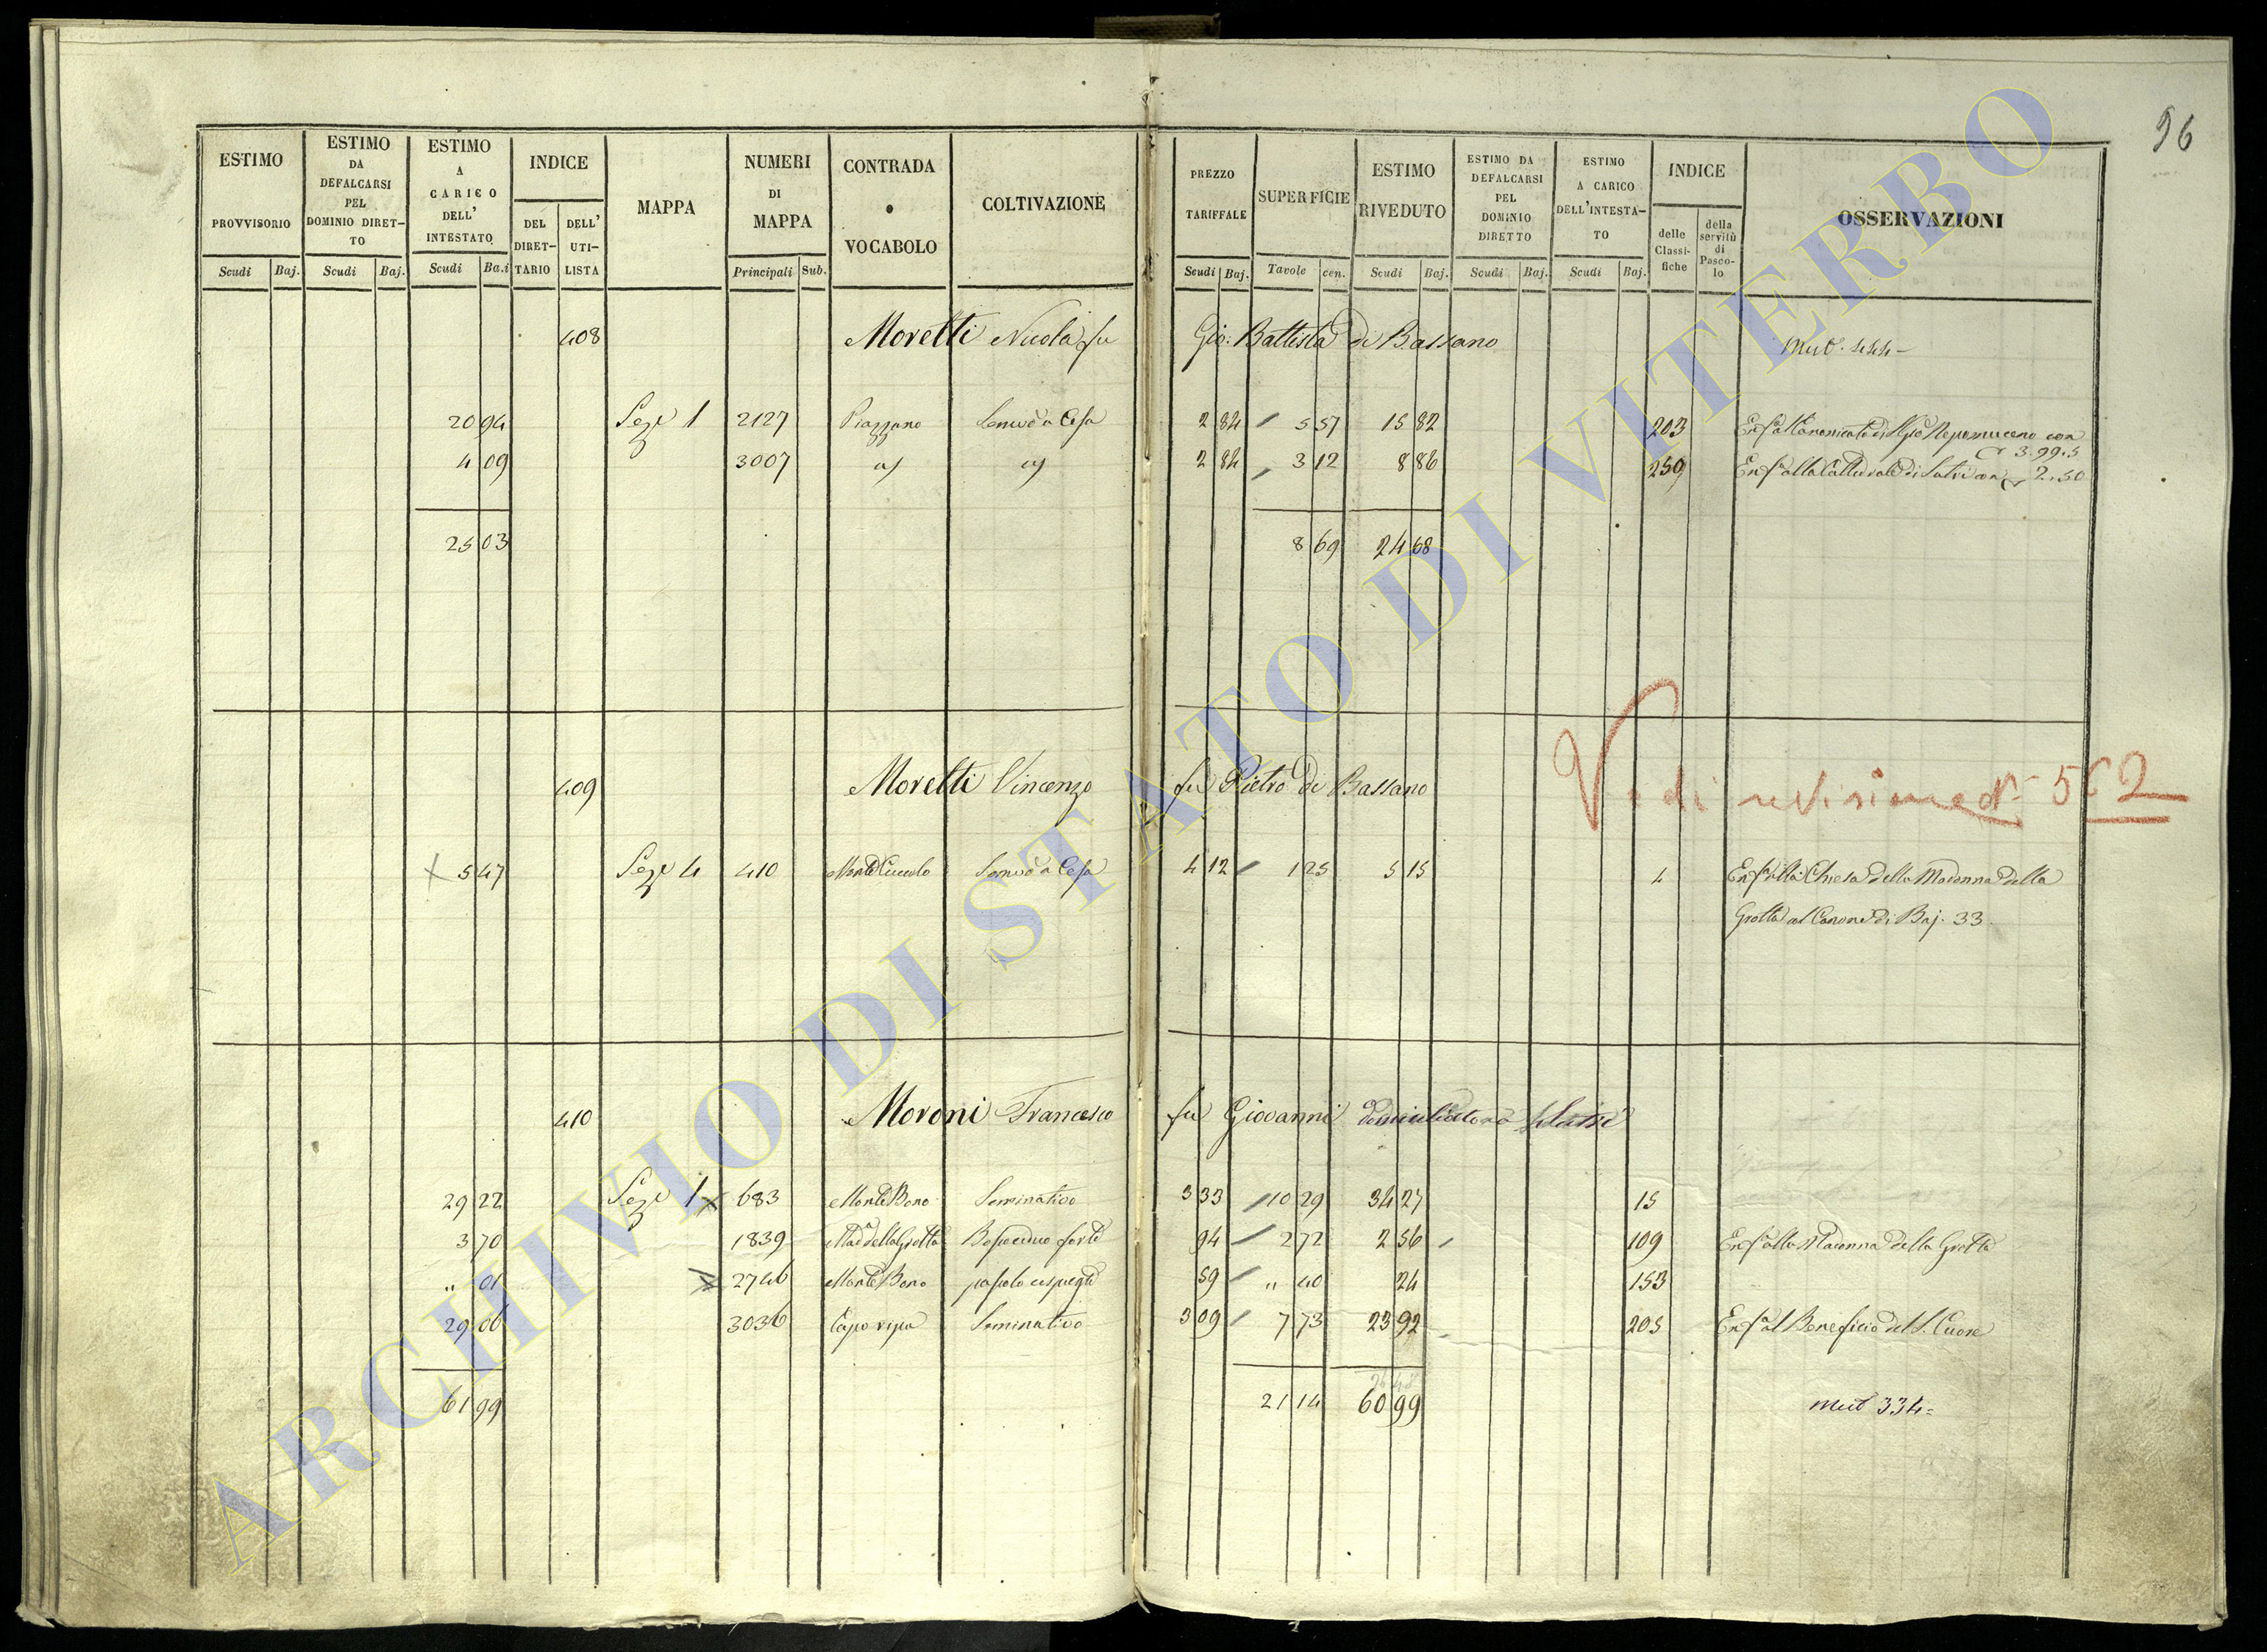 96
ESTIMO PROVVISORIO Scudi Baj.
ESTIMO DA DEFALCARSI PEL DOMINIO DIRETTO Scudi Baj.
ESTIMO A CARICO DELL' INTESTATO Scudi Ba.i
INDICE DEL DIRETTARIO DELL' UTILISTA
MAPPA
NUMERI DI MAPPA Principali Sub.
CONTRADA o VOCABOLO
COLTIVAZIONE
PREZZO TARIFFALE Scudi Baj.
SUPERFICIE Tavole cen.
ESTIMO RIVEDUTO Scudi Baj.
ESTIMO DA DEFALCARSI PEL DOMINIO DIRETTO Scudi Baj.
ESTIMO A CARICO DELL'INTESTATO Scudi Baj.
INDICE delle Classifiche della servitù di Pascolo
OSSERVAZIONI
408 Moretti Nicola fu Gio: Battista di Bassano Mut. 444
20 94 Sez. 1 2127 Piazzano 2 84 5 57 15 82 203 con
3.99.5
4 09 3007 2 84 3 12 8 86 250 Enf.a alla Cattedrale di Sutri con 2.50
25 03 8 69 24 68
409 Moretti Vincenzo fu Pietro di Bassano
Vedi revisione N. 562
5 47 Sez. 4 410 Monte Cuccolo 4 12 1 25 5 15 4 Enf.a alla Chiesa della Madonna della
Grotta al Canone di Baj. 33
410 Moroni Francesco fu Giovanni domiciliato a
29 22 Sez. 1 683 Monte Bono Seminativo 3 33 10 29 34 27 15
3 70 1839 Mad.a della Grotta Bosco ceduo forte 94 2 72 2 56 109 Enf.a alla Madonna della Grotta
" 01 2746 Monte Bono pascolo 59 " 40 24 153
29 06 3036 Capo ripa Seminativo 3 09 7 73 23 92 205 Enf.a al Beneficio del S. Cuore
61 99 21 14 60 99 Mut 334
ARCHIVIO DI STATO DI VITERBO